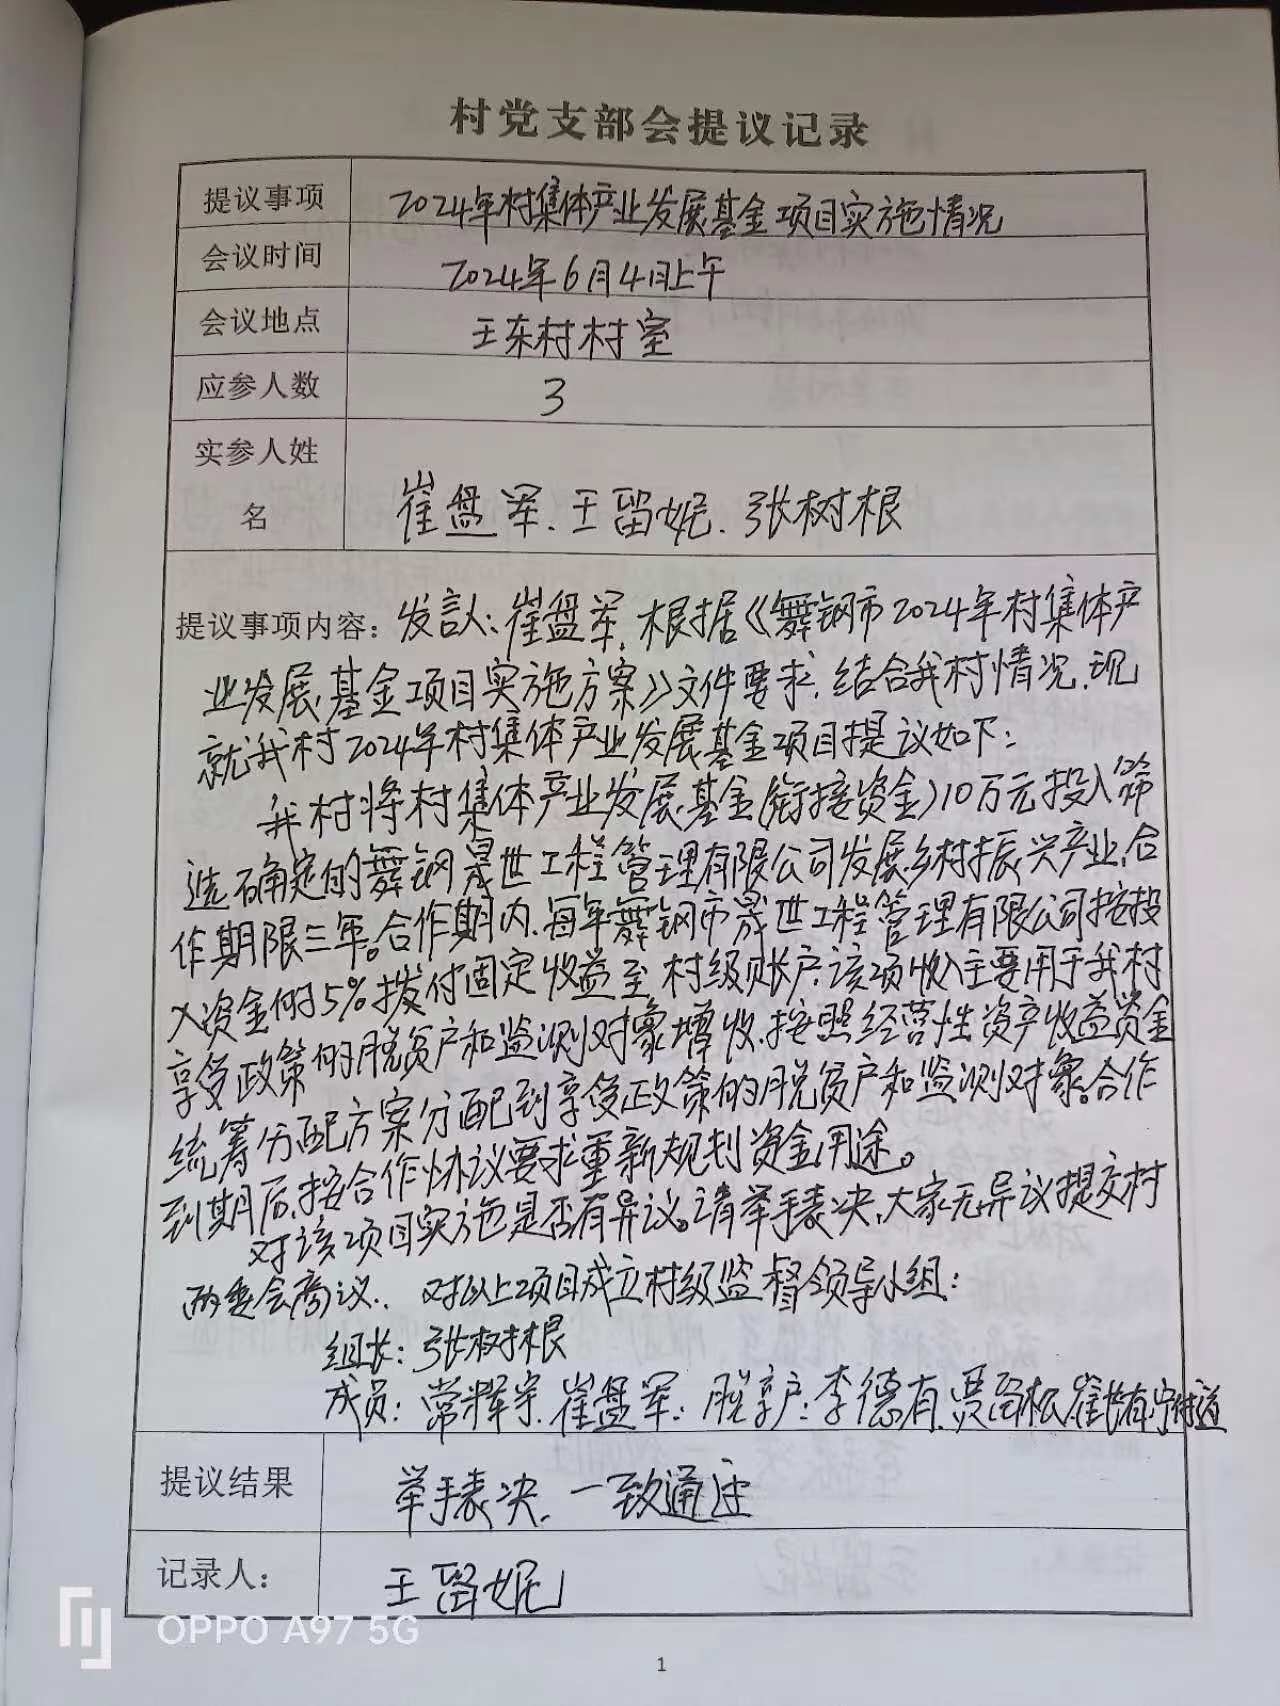 村党支部会提议记录
提议事项 2024年村集体产业发展基金项目实施情况
会议时间 2024年6月4日上午
会议地点 王东村村室
应参人数 3
实参人姓
名 崔盘军、王留妮、张树根
提议事项内容：发言人：崔盘军，根据《舞钢市2024年村集体产
业发展基金项目实施方案》文件要求，结合我村情况，现
就我村2024年村集体产业发展基金项目提议如下：
我村将村集体产业发展基金(衔接资金)10万元投入筛
选确定的舞钢晟世工程管理有限公司发展乡村振兴产业，合
作期限三年。合作期内，每年舞钢市晟世工程管理有限公司按投
入资金的5%拨付固定收益至村级账户，该项收入主要用于我村
享受政策的脱贫户和监测对象增收，按照经营性资产收益资金
统筹分配方案分配到享受政策的脱贫户和监测对象。合作
到期后，按合作协议要求重新规划资金用途。
对该项目实施是否有异议。请举手表决，大家无异议提交村
两委会商议。 对以上项目成立村级监督领导小组：
组长：张树根
成员：常辉宇、崔盘军、脱享户：李德有、贾 松、崔长有、
提议结果 举手表决，一致通过
记录人： 王留妮
OPPO A97 5G
1